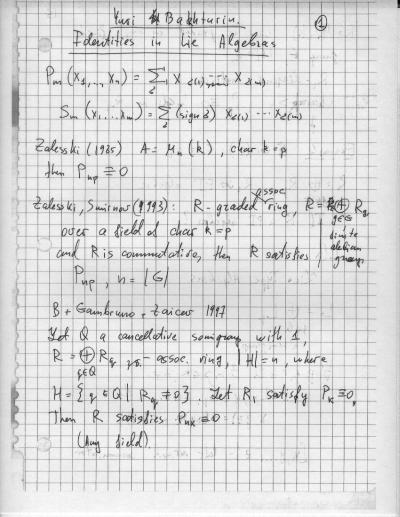 Yuri Bakhturin.
①
Identities in Lie Algebras
P_m(x_1,..,x_n) = Σ_σ x_σ(1) ... x_σ(m)
S_m(x_1...x_m) = Σ_σ (sign σ) x_σ(1) ... x_σ(m)
Zalesski (1985) A = M_n(k), char k = p
then P_np ≡ 0
Zalesski, Smirnov (1993): R - graded assoc. ring, R = ⊕_{g∈G} R_g,
over a field of char k = p
finite abelian group
and R is commutative, then R satisfies
P_np, n = |G|
B + Gambruno + Zaicev 1997
Let Q a cancellative semigroup with 1,
R = ⊕_{g∈Q} R_g - assoc. ring, |H| = n, where
H = {g ∈ Q | R_g ≠ 0}. Let R_1 satisfy P_k ≡ 0,
Then R satisfies P_nk ≡ 0
(Any field).